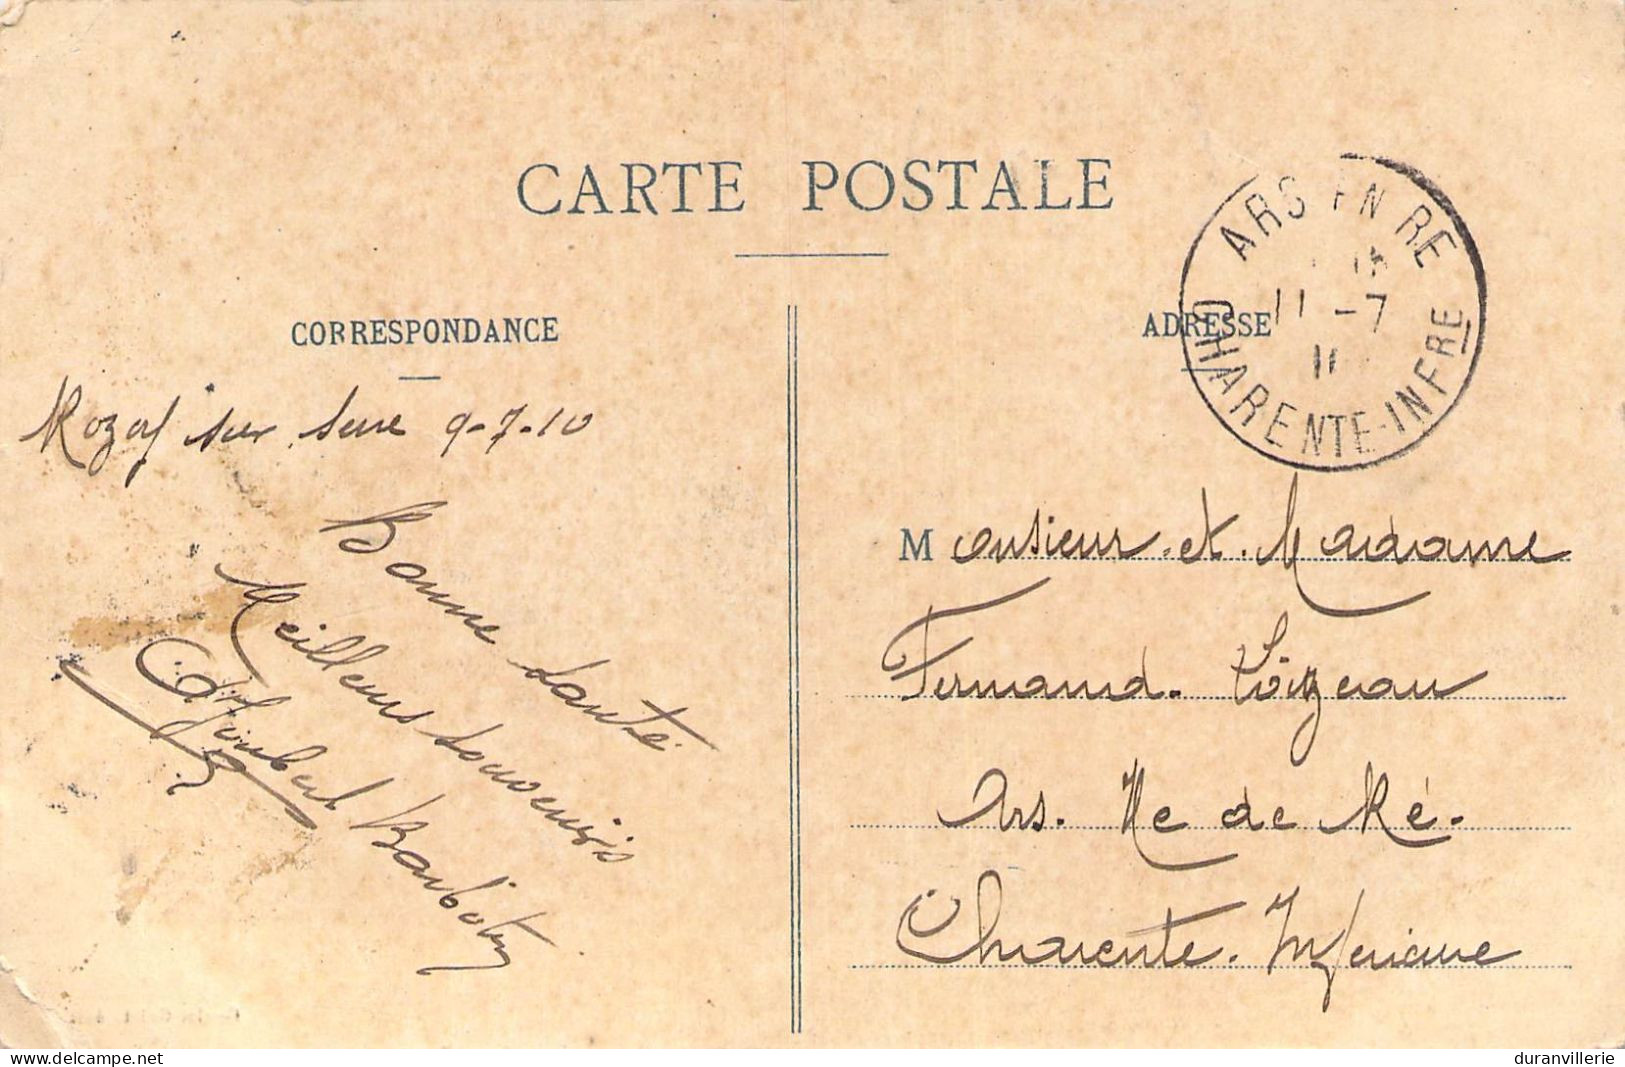 CARTE POSTALE
ARS EN RE
11 -7
11
CHARENTE-INFRE
CORRESPONDANCE
ADRESSE
Rozoy sur Serre 9-7-10
Bonne santé
Meilleurs souvenirs
Barbotin
Monsieur et Madame
Fernand Loizeau
Ars. Ile de Ré.
Charente. Inférieure
www.delcampe.net
duranvillerie